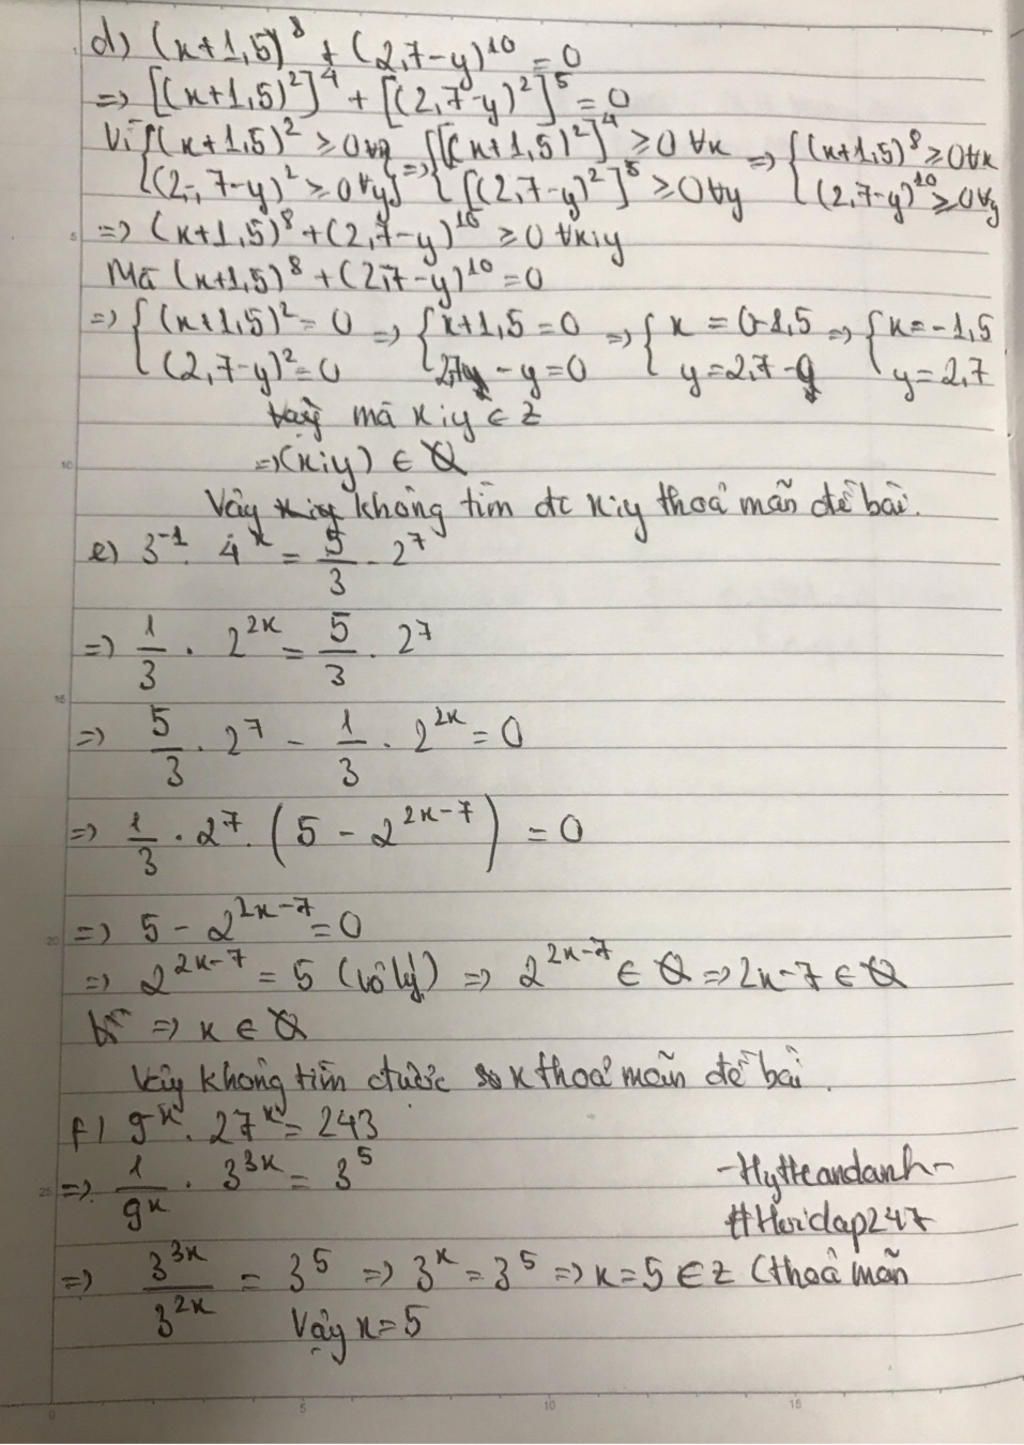 d) (x+1,5)^8 + (2,7-y)^10 = 0
=> [(x+1,5)^2]^4 + [(2,7-y)^2]^5 = 0
Vì { (x+1,5)^2 ≥ 0 ∀x => { [(x+1,5)^2]^4 ≥ 0 ∀x => { (x+1,5)^8 ≥ 0 ∀x
{ (2,7-y)^2 ≥ 0 ∀y { [(2,7-y)^2]^5 ≥ 0 ∀y { (2,7-y)^10 ≥ 0 ∀y
=> (x+1,5)^8 + (2,7-y)^10 ≥ 0 ∀x;y
Mà (x+1,5)^8 + (2,7-y)^10 = 0
=> { (x+1,5)^2 = 0 => { x+1,5 = 0 => { x = 0-1,5 => { x = -1,5
{ (2,7-y)^2 = 0 { 2,7 - y = 0 { y = 2,7 - 0 { y = 2,7
mà x;y ∈ Z
=> (x;y) ∈ Q
Vậy không tìm đc x;y thoả mãn đề bài.
e) 3^-1 . 4^x = 5/3 . 2^7
=> 1/3 . 2^2x = 5/3 . 2^7
=> 5/3 . 2^7 - 1/3 . 2^2x = 0
=> 1/3 . 2^7 . (5 - 2^2x-7) = 0
=> 5 - 2^2x-7 = 0
=> 2^2x-7 = 5 (vô lý) => 2^2x-7 ∈ Q => 2x-7 ∈ Q
=> x ∈ Q
Vậy không tìm được x thoả mãn đề bài.
f) 9^x . 27^x = 243
=> 1/9^x . 3^3x = 3^5
-Hytteandanh-
#Hoidap247
=> 3^3x/3^2x = 3^5 => 3^x = 3^5 => x = 5 ∈ Z (thoả mãn
Vậy x = 5